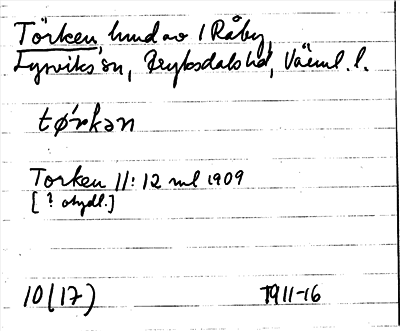 Törken, hmd av 1 Råby,
Lysviks sn, Fryksdals hd, Värml. l.
tø̀rkən
Torken 11: 12 ml 1909
[? otydl.]
10(17) 1911-16